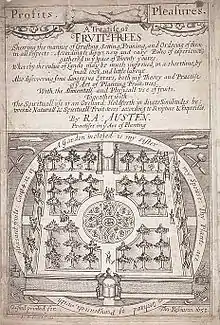 Profits,
Pleasures.
A Treatise of
FRUIT-TREES
Shewing the manner of Grafting, Setting, Pruning, and Ordering of them
in all respects: According to divers new and easy Rules of experience;
gathered in y space of Twenty yeares.
Whereby the value of Lands may be much improved, in a shorttime, by
small cost, and little labour.
Also discovering some dangerous Errors, both in y Theory and Practise
of y Art of Planting Fruit-trees.
With the Alimentall and Physicall use of fruits.
Togeather with
The Spirituall use of an Orchard: Held forth in divers Similitudes be
tweene Naturall & Spirituall Fruit-trees: according to Scripture & Experiēce.
By RA: AUSTEN.
Practiser in y Art of Planting
A Garden inclosed is my sister
my Spouse
Oxford printed for
Tho: Robinson 1653